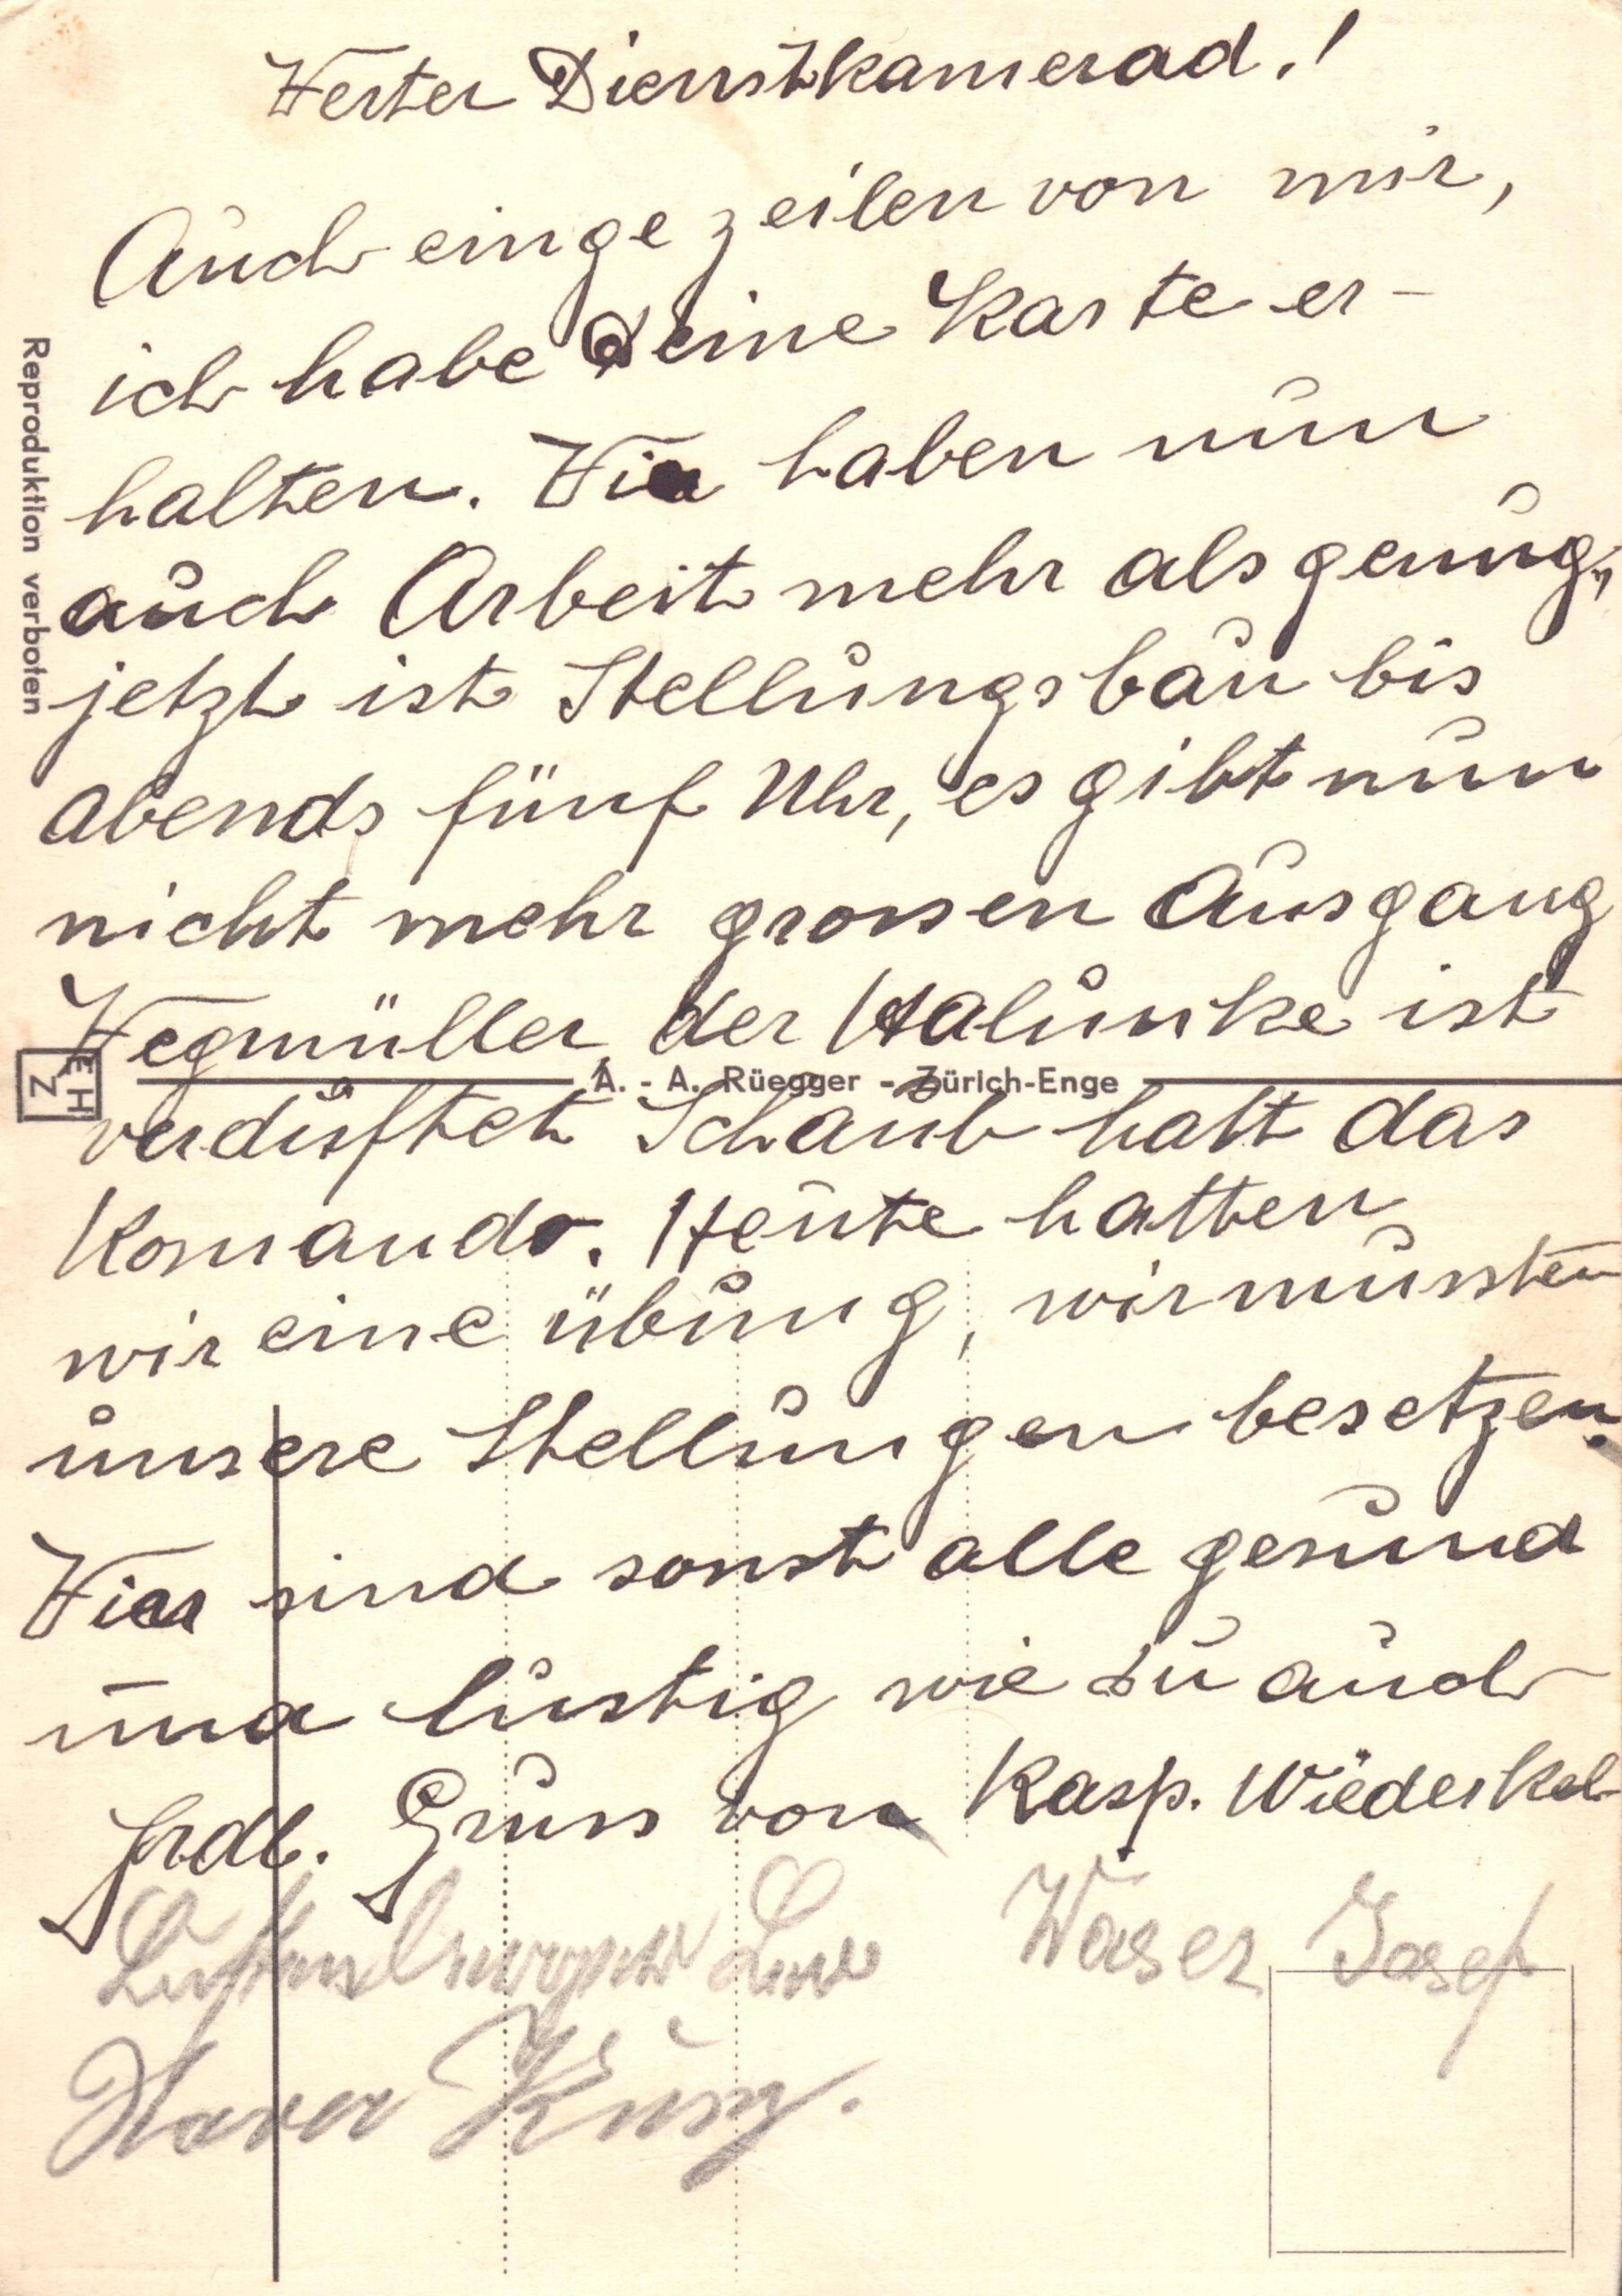 Werter Dienstkamerad.!
Auch einge zeilen von mir,
ich habe deine Karte er-
halten. Wir haben nun
auch Arbeit mehr als genug,
jetzt ist Stellungsbau bis
Abends fünf Uhr, es gibt nun
nicht mehr grossen Ausgang
Wegmüller der Halunke ist
A. - A. Rüegger - Zürich-Enge
verduftet Schaub hatt das
Komando. Heute hatten
wir eine übung, wir mussten
unsere Stellungen besetzen.
Wier sind sonst alle gesund
und lustig wie du auch
frdl. Gruss von Kasp. Wiederkehr
Waser Josef
Xaver Küng.
Reproduktion verboten
EHZ